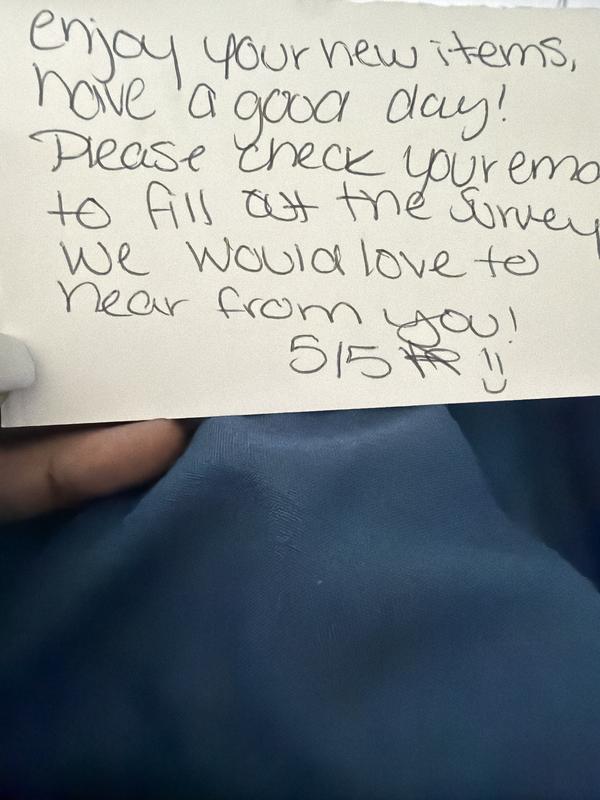 enjoy your new items,
have a good day!
Please check your ema
to fill out the survey
we would love to
hear from you!
515 :)